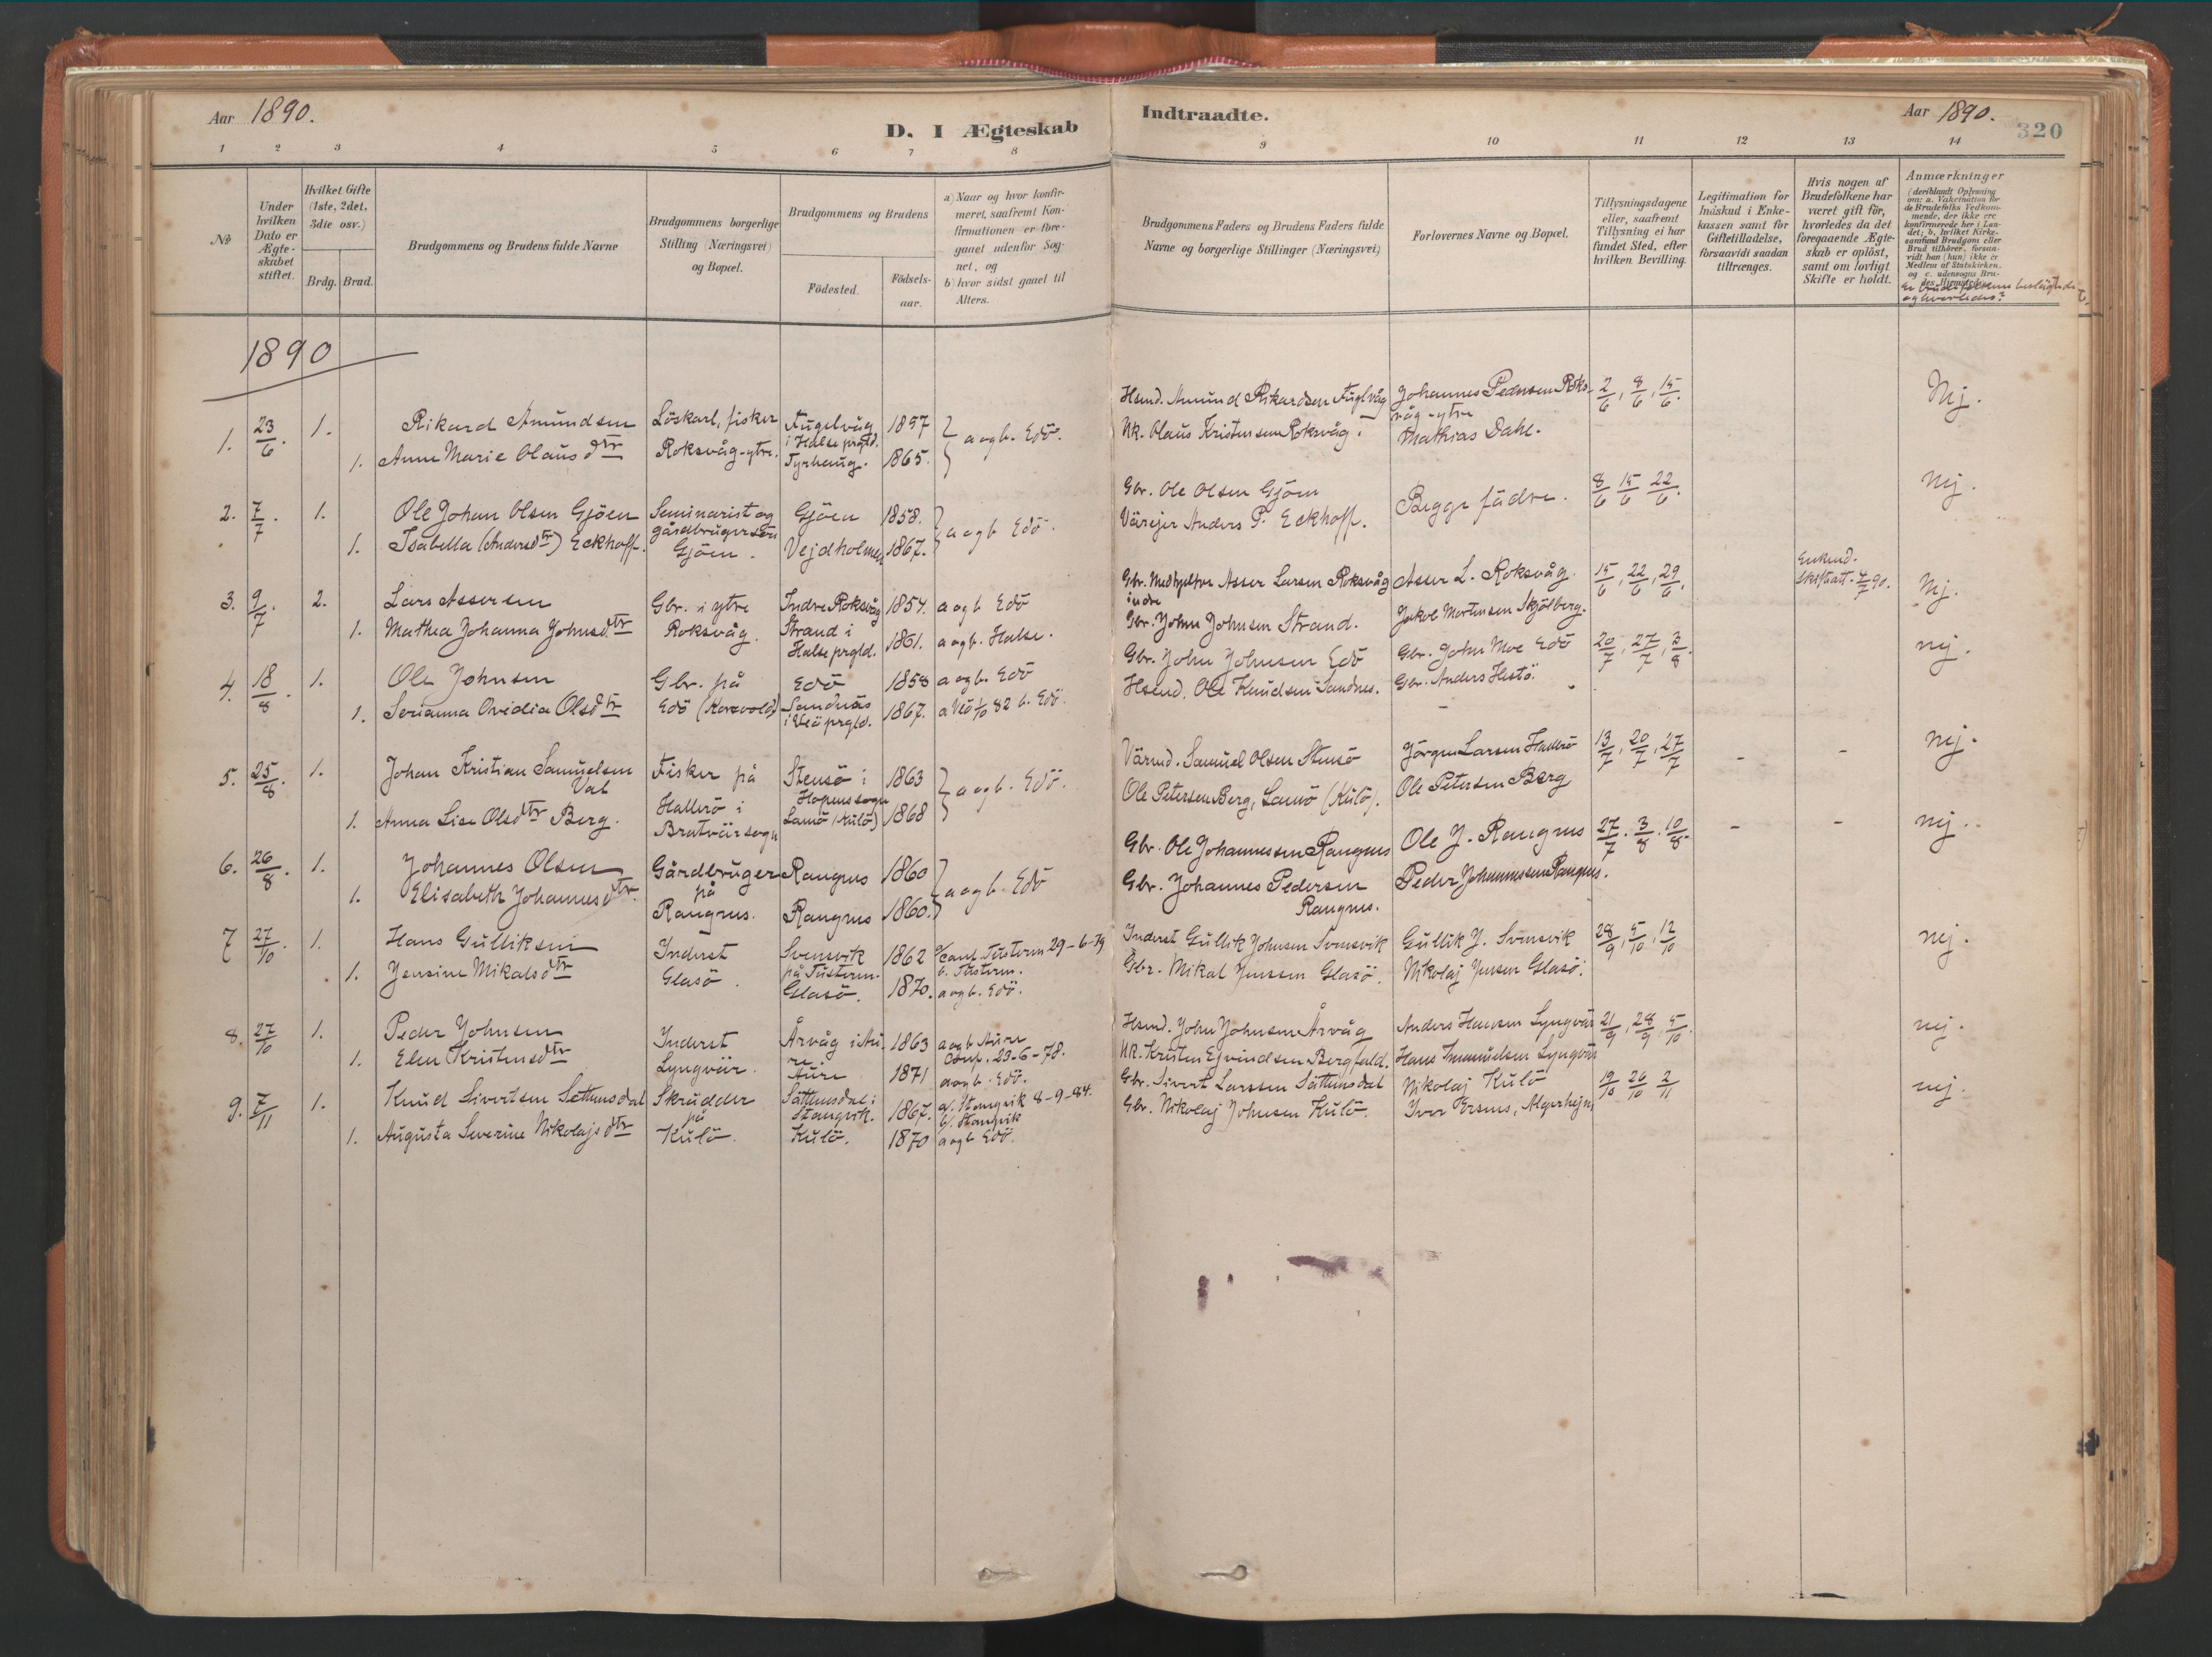 Aar 1890.
D. I Ægteskab
Indtraadte.
Aar 1890.
320
1 2 3 4 5 6 7 8
9 10 11 12 13 14
№
Under hvilken Dato er Ægteskabet stiftet.
Hvilket Gifte (1ste, 2det, 3die osv.)
Brdg. Brud.
Brudgommens og Brudens fulde Navne
Brudgommens borgerlige Stilling (Næringsvei) og Bopæl.
Brudgommens og Brudens
Födested.
Födsels-aar.
a) Naar og hvor konfir-
meret, saafremt Kon-
firmationen er fore-
gaaet udenfor Sog-
net, og
b) hvor sidst gaaet til
Alters.
Brudgommens Faders og Brudens Faders fulde
Navne og borgerlige Stillinger (Næringsvei)
Forlovernes Navne og Bopæl.
Tillysningsdagene
eller, saafremt
Tillysning ei har
fundet Sted, efter
hvilken Bevilling.
Legitimation for
Indskud i Enke-
kassen samt for
Giftetilladelse,
forsaavidt saadan
tiltrænges.
Hvis nogen af
Brudefolkene har
været gift för,
hvorledes da det
foregaaende Ægte-
skab er oplöst,
samt om lovligt
Skifte er holdt.
Anmærkninger
(deriblandt Oplysning
om: a. Vakcination for
de Brudefolks Vedkom-
mende, der ikke ere
konfirmerede her i Lan-
det; b. hvilket Kirke-
samfund Brudgom eller
Brud tilhörer, forsaa-
vidt han (hun) ikke er
Medlem af Statskirken,
og c. udensogns Bru-
des Hjemsted).
Er Brudefolkene beslægtede
og hvorledes?
1890
1. 23/6. 1. Rikard Amundsen Löskarl, fisker Fugelvåg i Halse prgld. 1857 } a og b. Edö.
1. Anne Marie Olausdtr Roksvåg-ytre. Tyrhaug. 1865.
Hsmd. Amund Rikardsen Fuglvåg Johannes Pedersen Roksvåg-ytre 2/6, 8/6, 15/6. Nej.
NR. Olaus Kristensen Roksvåg. Mathias Dahl.
2. 7/7. 1. Ole Johan Olsen Gjöen Seminarist og gårdbrugersön Gjöen 1858. } a og b Edö.
1. Isabella (Andersdtr) Eckhoff. Gjöen. Vejdholmen 1867.
Gbr. Ole Olsen Gjöen Begge fädre. 8/6 15/6 22/6. Nej.
Värejer Anders P. Eckhoff.
3. 9/7. 2. Lars Assersen Gbr. i ytre Indre Roksvåg 1854. a og b Edö
1. Mathea Johanna Johnsdtr Roksvåg. Strand i Halse prgld. 1861. a og b. Halse.
Gbr. Medhjelper Asser Larsen Roksvåg indre Asser L. Roksvåg. 15/6, 22/6, 29/6. Enkemd. 4/7 90. Nej.
Gbr. John Johnsen Strand. Jakob Mortensen Skjölberg.
4. 18/8. 1. Ole Johnsen Gbr. på Edö 1858 a og b. Edö
1. Serianna Ovidia Olsdtr Edö (Korsvold) Sandnäs i Veö prgld. 1867. a Veö 1/10 82 b. Edö.
Gbr. John Johnsen Edö Gbr. John Moe Edö 20/7, 27/7, 3/8. nej.
Hsmd. Ole Knudsen Sandnes. Gbr. Anders Hestö.
5. 25/8. 1. Johan Kristian Samuelsen Val Fisker på Stensö i Hopens sogn 1863 } a og b. Edö.
1. Anna Lise Olsdtr Berg. Hallerö i Bratvär sogn Lamö (Kulö) 1868
Värmd. Samuel Olsen Stensö Jörgen Larsen Hallerö 13/7, 20/7, 27/7 - - nej.
Ole Petersen Berg, Lamö (Kulö). Ole Petersen Berg
6. 26/8. 1. Johannes Olsen Gårdbruger Rangnes 1860 } a og b. Edö
1. Elisabeth Johannesdtr. på Rangnes. Rangnes 1860.
Gbr. Ole Johannessen Rangnes Ole J. Rangnes 27/7. 3/8. 10/8. - - nej.
Gbr. Johannes Pedersen Rangnes. Peder Johannessen Rangnes.
7 27/10. 1. Hans Gulliksen Inderst Svensvik på Tusteren. 1862 a/ conf. Tusteren 29-6-79 b. Tusteren.
1. Jensine Mikalsdtr Glasö. Glasö. 1870. a og b. Edö.
Inderst Gullik Johnsen Svensvik Gullik J. Svensvik 28/9, 5/10, 12/10 nej.
Gbr. Mikal Jenssen Glasö. Nikolaj Jensen Glasö.
8. 27/10 1. Peder Johnsen Inderst Årvåg i Aure 1863 a og b Aure Conf. 23-6-78.
1. Elen Kristensdtr Lyngvär. Aure 1871 a og b. Edö.
Hsmd. John Johnsen Årvåg Anders Hansen Lyngvär 21/9, 28/9, 5/10. nej.
NR. Kristen Ejvindsen Bergfald. Hans Imanuelsen Lyngvär
9. 7/11 1. Knud Sivertsen Settemsdal Skrædder Sättemsdal i Stangvik. 1867. a/. Stangvik 8-9-84. b/. Stangvik
1. Augusta Severine Nikolajsdtr på Kulö. Kulö. 1870 a og b Edö.
Gbr. Sivert Larssen Sättemsdal Nikolaj Kulö 19/10 26/10 2/11 nej.
Gbr. Nikolaj Johnsen Kulö. Iver Ersnes,